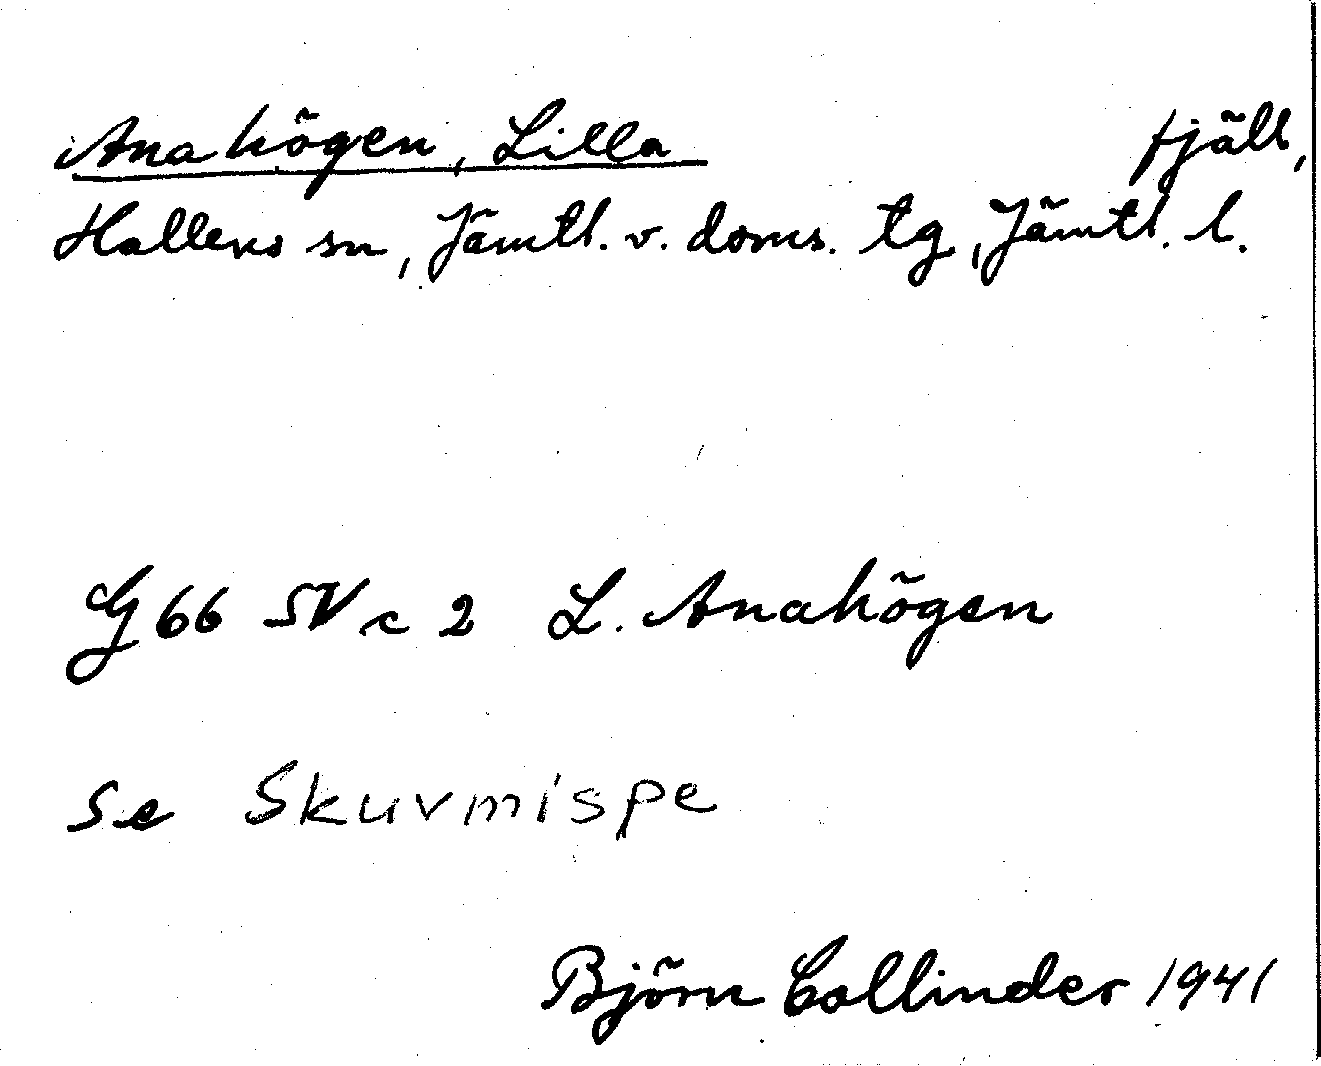 Anahögen, Lilla fjäll,
Hallens sn, Jämtl. v. doms. tg, Jämtl. l.
G 66 SV c 2 L. Anahögen
Se Skuvmispe
Björn Collinder 1941